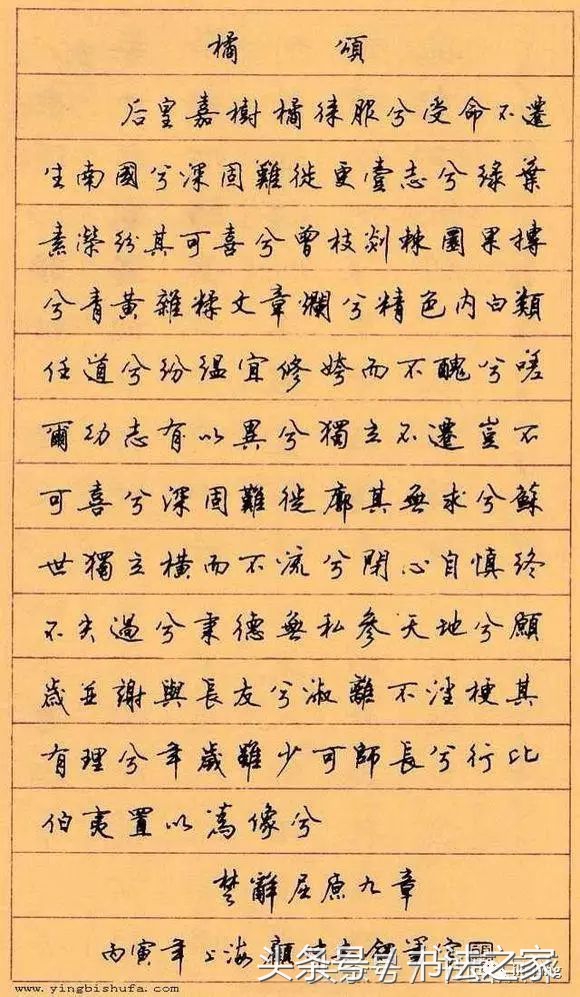 橘頌
后皇嘉樹橘徕服兮受命不遷
生南國兮深固難徙更壹志兮綠葉
素榮紛其可喜兮曾枝剡棘圓果摶
兮青黃雜糅文章爛兮精色内白類
任道兮紛緼宜修姱而不醜兮嗟
爾幼志有以異兮獨立不遷豈不
可喜兮深固難徙廓其無求兮蘇
世獨立橫而不流兮閉心自慎終
不失過兮秉德無私參天地兮願
歲並謝與長友兮淑離不淫梗其
有理兮年歲雖少可師長兮行比
伯夷置以為像兮
楚辭屈原九章
丙寅年上海
头条号 / 书法之家
www.yingbishufa.com